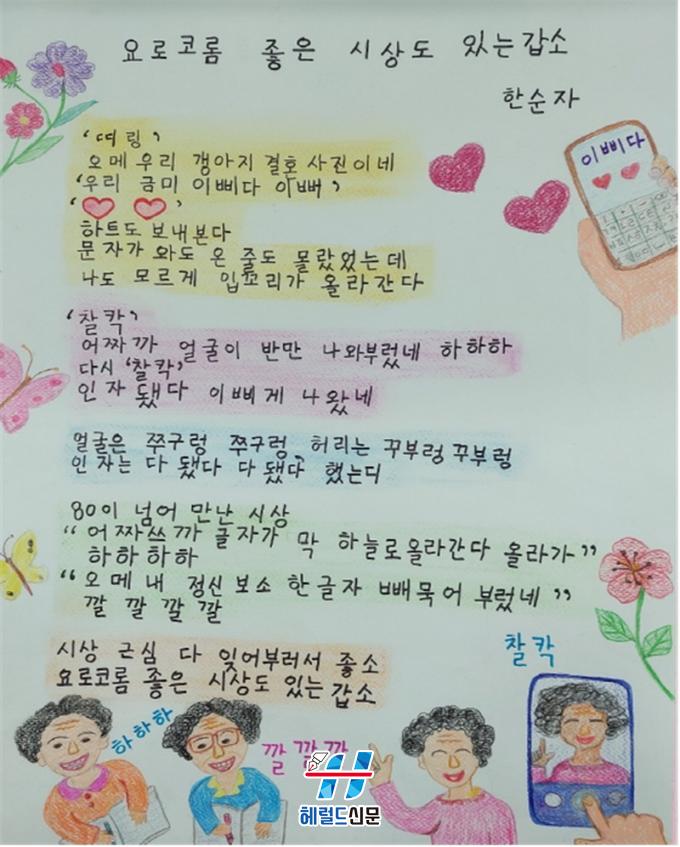 요로코롬 좋은 시상도 있는갑소
한순자
'띠링'
오메 우리 갱아지 결혼 사진이네
'우리 금미 이삐다 이뻐'
'♥ ♥'
하트도 보내본다
문자가 와도 온 줄도 몰랐었는데
나도 모르게 입꼬리가 올라간다
이삐다
'찰칵'
어짜까 얼굴이 반만 나와부렀네 하하하
다시 '찰칵'
인자 됐다 이삐게 나왔네
얼굴은 쭈구렁 쭈구렁, 허리는 꾸부렁 꾸부렁
인자는 다 됐다 다 됐다 했는디
80이 넘어 만난 시상
“어짜쓰까 글자가 막 하늘로올라간다 올라가”
하하하하
“오메 내 정신보소 한글자 빼묵어 부렀네”
깔 깔 깔 깔
시상 근심 다 잊어부러서 좋소
요로코롬 좋은 시상도 있는갑소
찰칵
하하하
깔깔깔
헤럴드신문